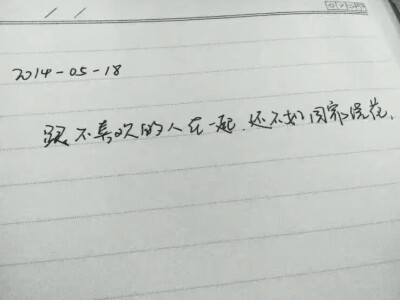 2014-05-18
跟不喜欢的人在一起,还不如回家浇花.